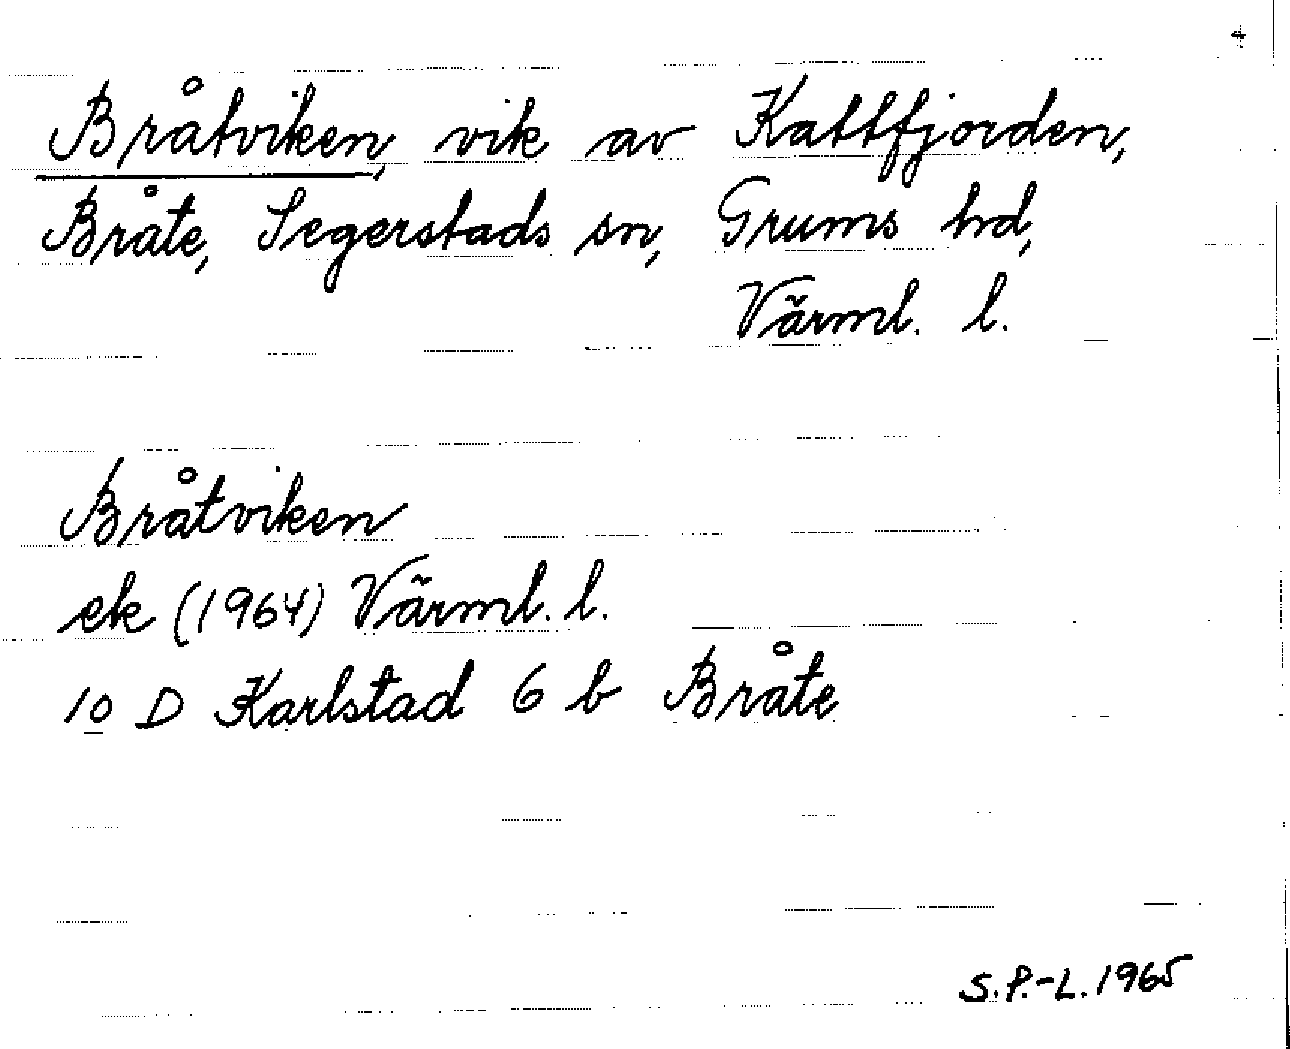 4
Bråtviken, vik av Kattfjorden,
Bråte, Segerstads sn, Grums hd,
Värml. l.
Bråtviken
ek (1964) Värml. l.
10 D Karlstad 6 b Bråte
S.P.-L. 1965